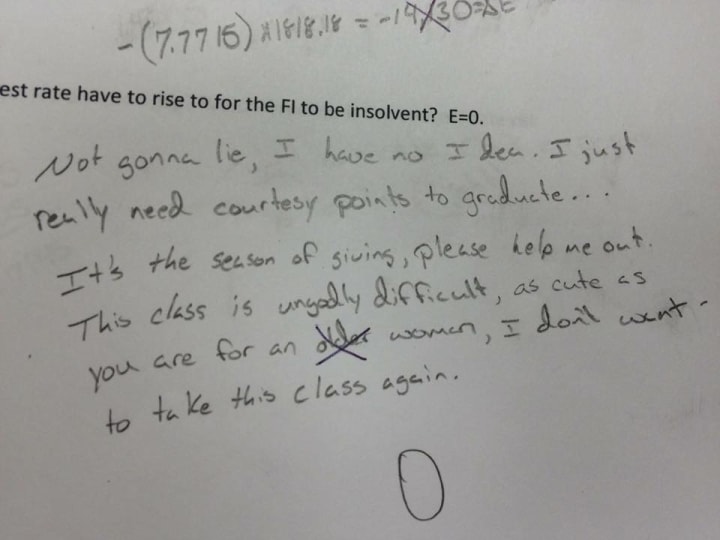 -(7.7715) x 1818.18 = -14130=ΔE
est rate have to rise to for the FI to be insolvent? E=0.
Not gonna lie, I have no Idea. I just
really need courtesy points to graduate...
It's the season of giving, please help me out.
This class is ungodly difficult, as cute as
you are for an older women, I don't want
to take this class again.
0